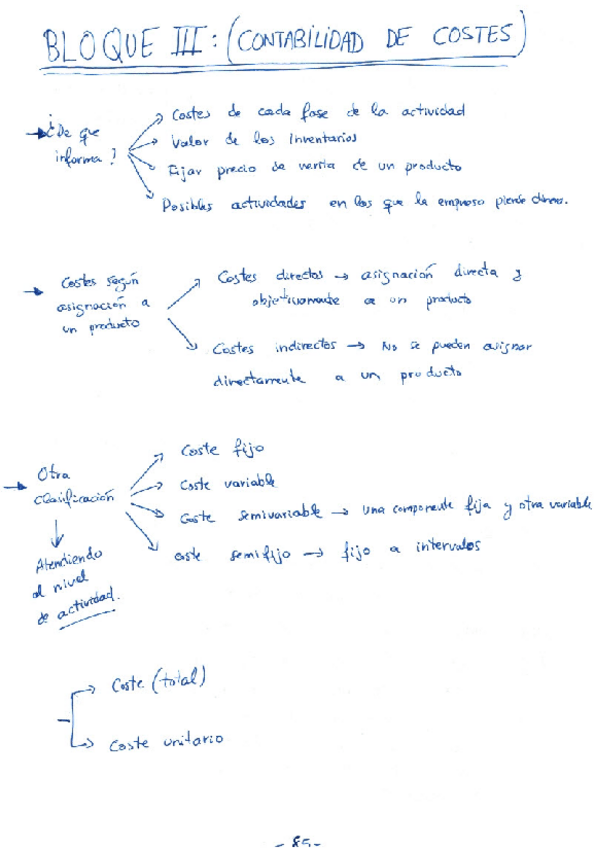 BLOQUE III: (CONTABILIDAD DE COSTES)
¿De que
informa?
Costes de cada fase de la actividad
Valor de los Inventarios
Fijar precio de venta de un producto
Posibles actividades en las que la empresa pierde dinero.
Costes según
asignación a
un producto
Costes directos → asignación directa y
objetivamente a un producto
Costes indirectos → No se pueden asignar
directamente a un producto
Otra
clasificación
Atendiendo
al nivel
de actividad.
Coste fijo
Coste variable
Coste semivariable → una componente fija y otra variable
oste semifijo → fijo a intervalos
Coste (total)
Coste unitario
- 85 -